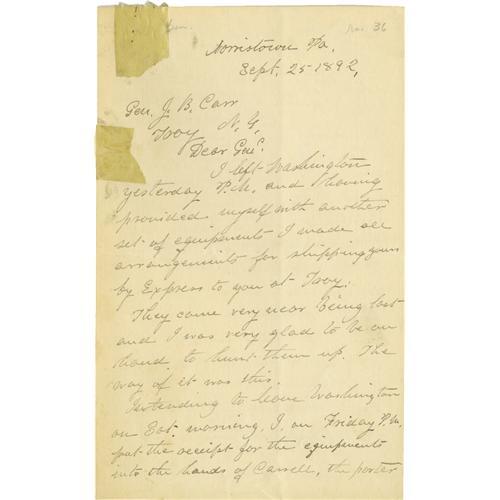 Norristown Pa.
Sept. 25 1892,
Gen. J. B. Carr
Troy N. Y,
Dear Genl.
I left Washington
yesterday P.M. and having
provided myself with another
set of equipments I made all
arrangements for shipping yours
by Express to you at Troy.
They came very near being lost
and I was very glad to be on
hand to hunt them up. The
way of it was this.
Intending to leave Washington
on Sat. morning, I, on Friday P.M.
put the receipt for the equipments
into the hands of Carrell, the porter